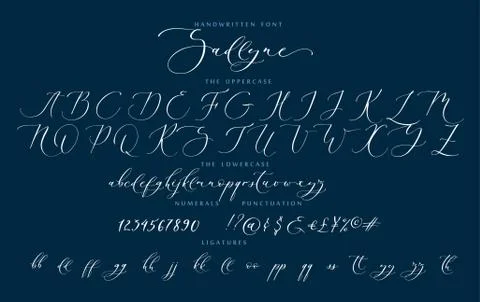 HANDWRITTEN FONT
Sadlyne
THE UPPERCASE
A B C D E F G H I J K L M
N O P Q R S T U V W X Y Z
THE LOWERCASE
abcdefghijklmnopqrstuvwxyz
NUMERALS PUNCTUATION
1234567890 !?@¢$£€£¥%©#
LIGATURES
bb dd ff gg hh jj kk ll oo pp qq ss tt cc yy zz th